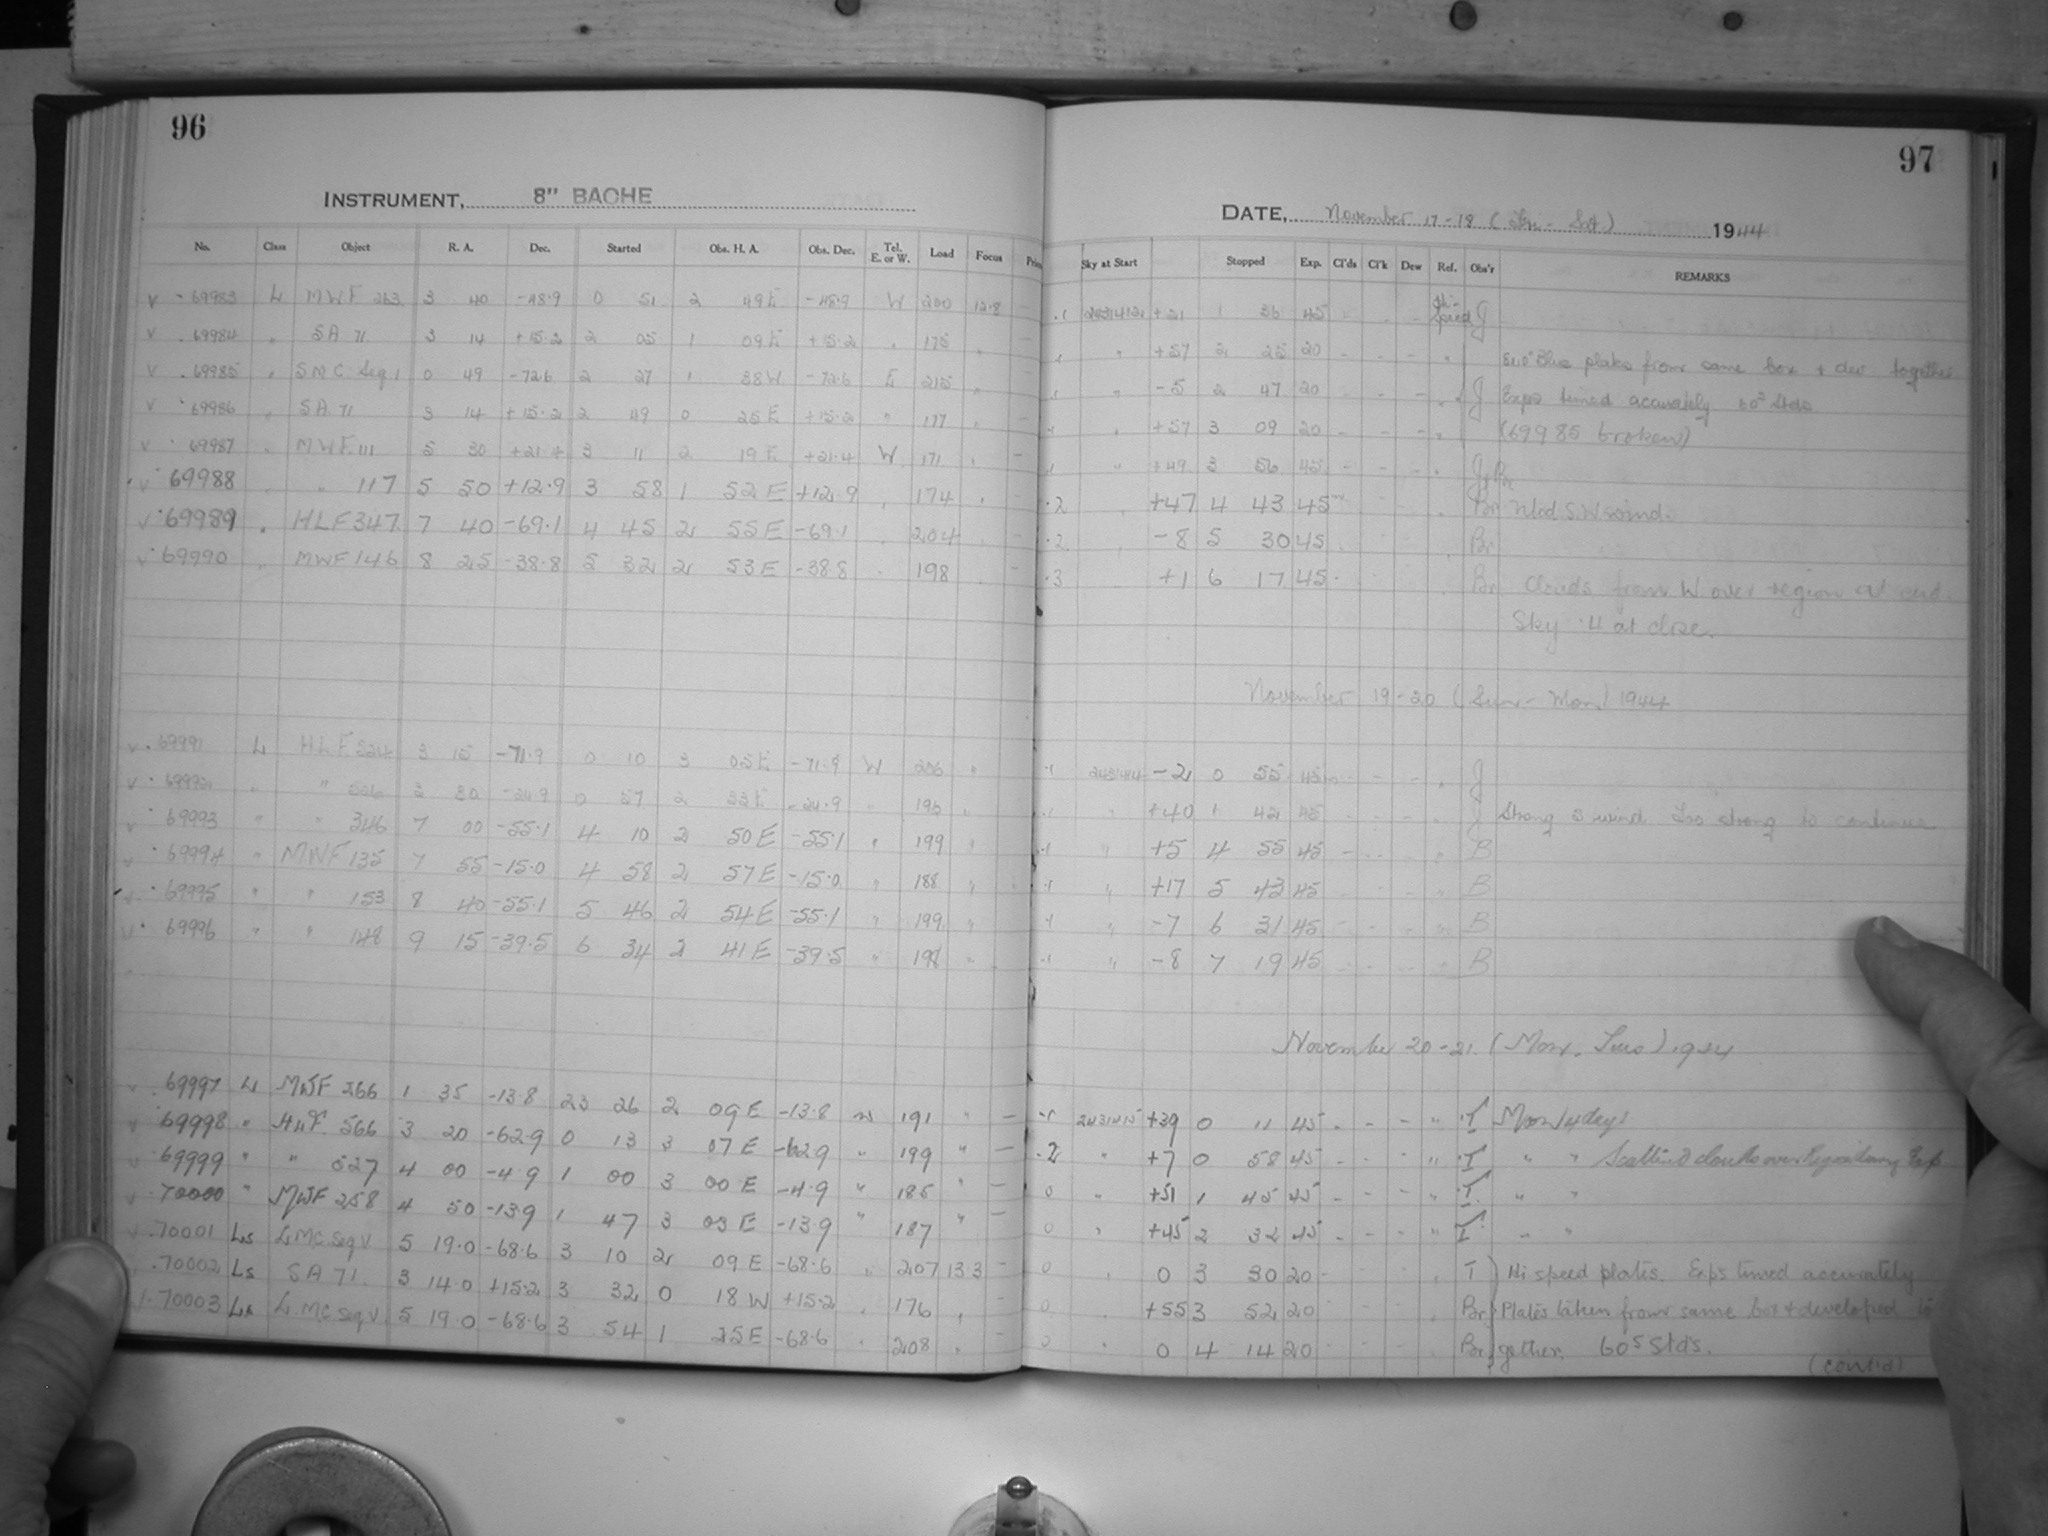 96
INSTRUMENT, 8" BACHE
No. Class Object R. A. Dec. Started Obs. H. A. Obs. Dec. Tel. E. or W. Load Focus
69983 L MWF 263 3 40 -48.9 0 51 2 49E -48.9 W 200 12.8 —
69984 " SA 71 3 14 +15.2 2 05 1 09E +15.2 " 175 "
69985 " SMC Seq 1 0 49 -72.6 2 27 1 38W -72.6 E 215 "
69986 " SA 71 3 14 +15.2 2 49 0 25E +15.2 " 177 "
69987 " MWF 111 5 30 +21.4 3 11 2 19E +21.4 W 171 "
69988 " " 117 5 50 +12.9 3 58 1 52E +12.9 " 174 "
69989 " HLF 347 7 40 -69.1 4 45 2 55E -69.1 " 204
69990 " MWF 146 8 25 -38.8 5 32 2 53E -38.8 " 198
69991 L HLF 3 15 -71.9 0 10 3 05E -71.9 W 206 "
69992 " " 3 30 -24.9 0 57 2 33E -24.9 " 195 "
69993 " " 346 7 00 -55.1 4 10 2 50E -55.1 " 199 "
69994 " MWF 135 7 55 -15.0 4 58 2 57E -15.0 " 188 "
69995 " " 153 8 40 -55.1 5 46 2 54E -55.1 " 199 "
69996 " " 148 9 15 -39.5 6 34 2 41E -39.5 " 198 "
69997 L MWF 266 1 35 -13.8 23 26 2 09E -13.8 W 191 " —
69998 " HLF 566 3 20 -62.9 0 13 3 07E -62.9 " 199 " —
69999 " " 527 4 00 -4.9 1 00 3 00E -4.9 " 185 " —
70000 " MWF 258 4 50 -13.9 1 47 3 03E -13.9 " 187 " —
70001 Ls LMC Seq V 5 19.0 -68.6 3 10 2 09E -68.6 " 207 13.3 —
70002 Ls SA 71 3 14.0 +15.2 3 32 0 18W +15.2 " 176 "
70003 Ls LMC Seq V 5 19.0 -68.6 3 54 1 25E -68.6 " 208 " —
97
DATE, November 17-18 (Fri - Sat) 1944
Sky at Start Stopped Exp. Cl'ds Cl'k Dew Ref. Obs'r REMARKS
.1 2431412 +21 1 36 45 Hi-Speed J
" +57 2 25 20 - - - " Blue plates from same box + dev together
" -5 2 47 20 - - - " J Exps timed accurately 60s Stds
" +57 3 09 20 - - - " (69985 broken)
" +49 3 56 45 - - " J, Br
.2 " +47 4 43 45 Br Mod S.W wind.
.2 " -8 5 30 45 Br
.3 +1 6 17 45 Br Clouds from W over region at end.
Sky .4 at close.
November 19-20 (Sun - Mon) 1944
.1 2431414 -2 0 55 45 - - - " J
.1 " +40 1 42 45 - - - " J Strong S wind Too strong to continue
.1 " +5 4 55 45 - - - " B
.1 " +17 5 43 45 - - - " B
.1 " -7 6 31 45 - - - " B
.1 " -8 7 19 45 - - - " B
November 20-21. (Mon. Tues) 1944
.1 2431415 +39 0 11 45 - - - " T Moon 4 days
.2 " +7 0 58 45 - - - " T " " Scattered clouds over Region during Exp
0 " +51 1 45 45 - - - " T " "
0 " +45 2 32 45 - - - " T " "
0 " 0 3 30 20 - - - " T Hi speed plates. Exps timed accurately
0 " +55 3 52 20 - - - " Br Plates taken from same box + developed to
0 " 0 4 14 20 - - - " Br gether. 60s Stds.
(cont'd)